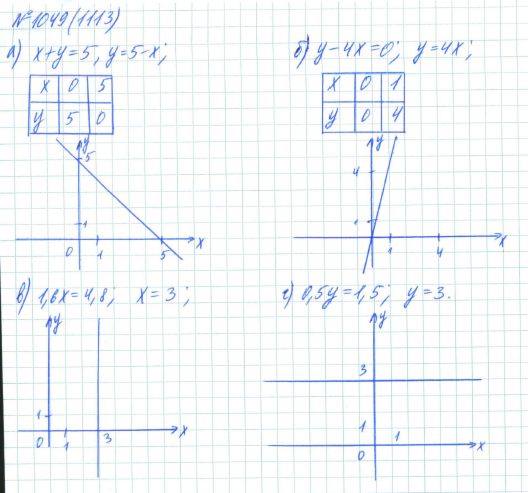 №1049(1113)
а) x+y=5, y=5-x;
x 0 5
y 5 0
y
5
1
0 1 5 x
б) y-4x=0; y=4x;
x 0 1
y 0 4
y
4
1
1 4 x
в) 1,6x=4,8; x=3;
y
1
0 1 3 x
г) 0,5y=1,5; y=3.
y
3
1
0 1 x